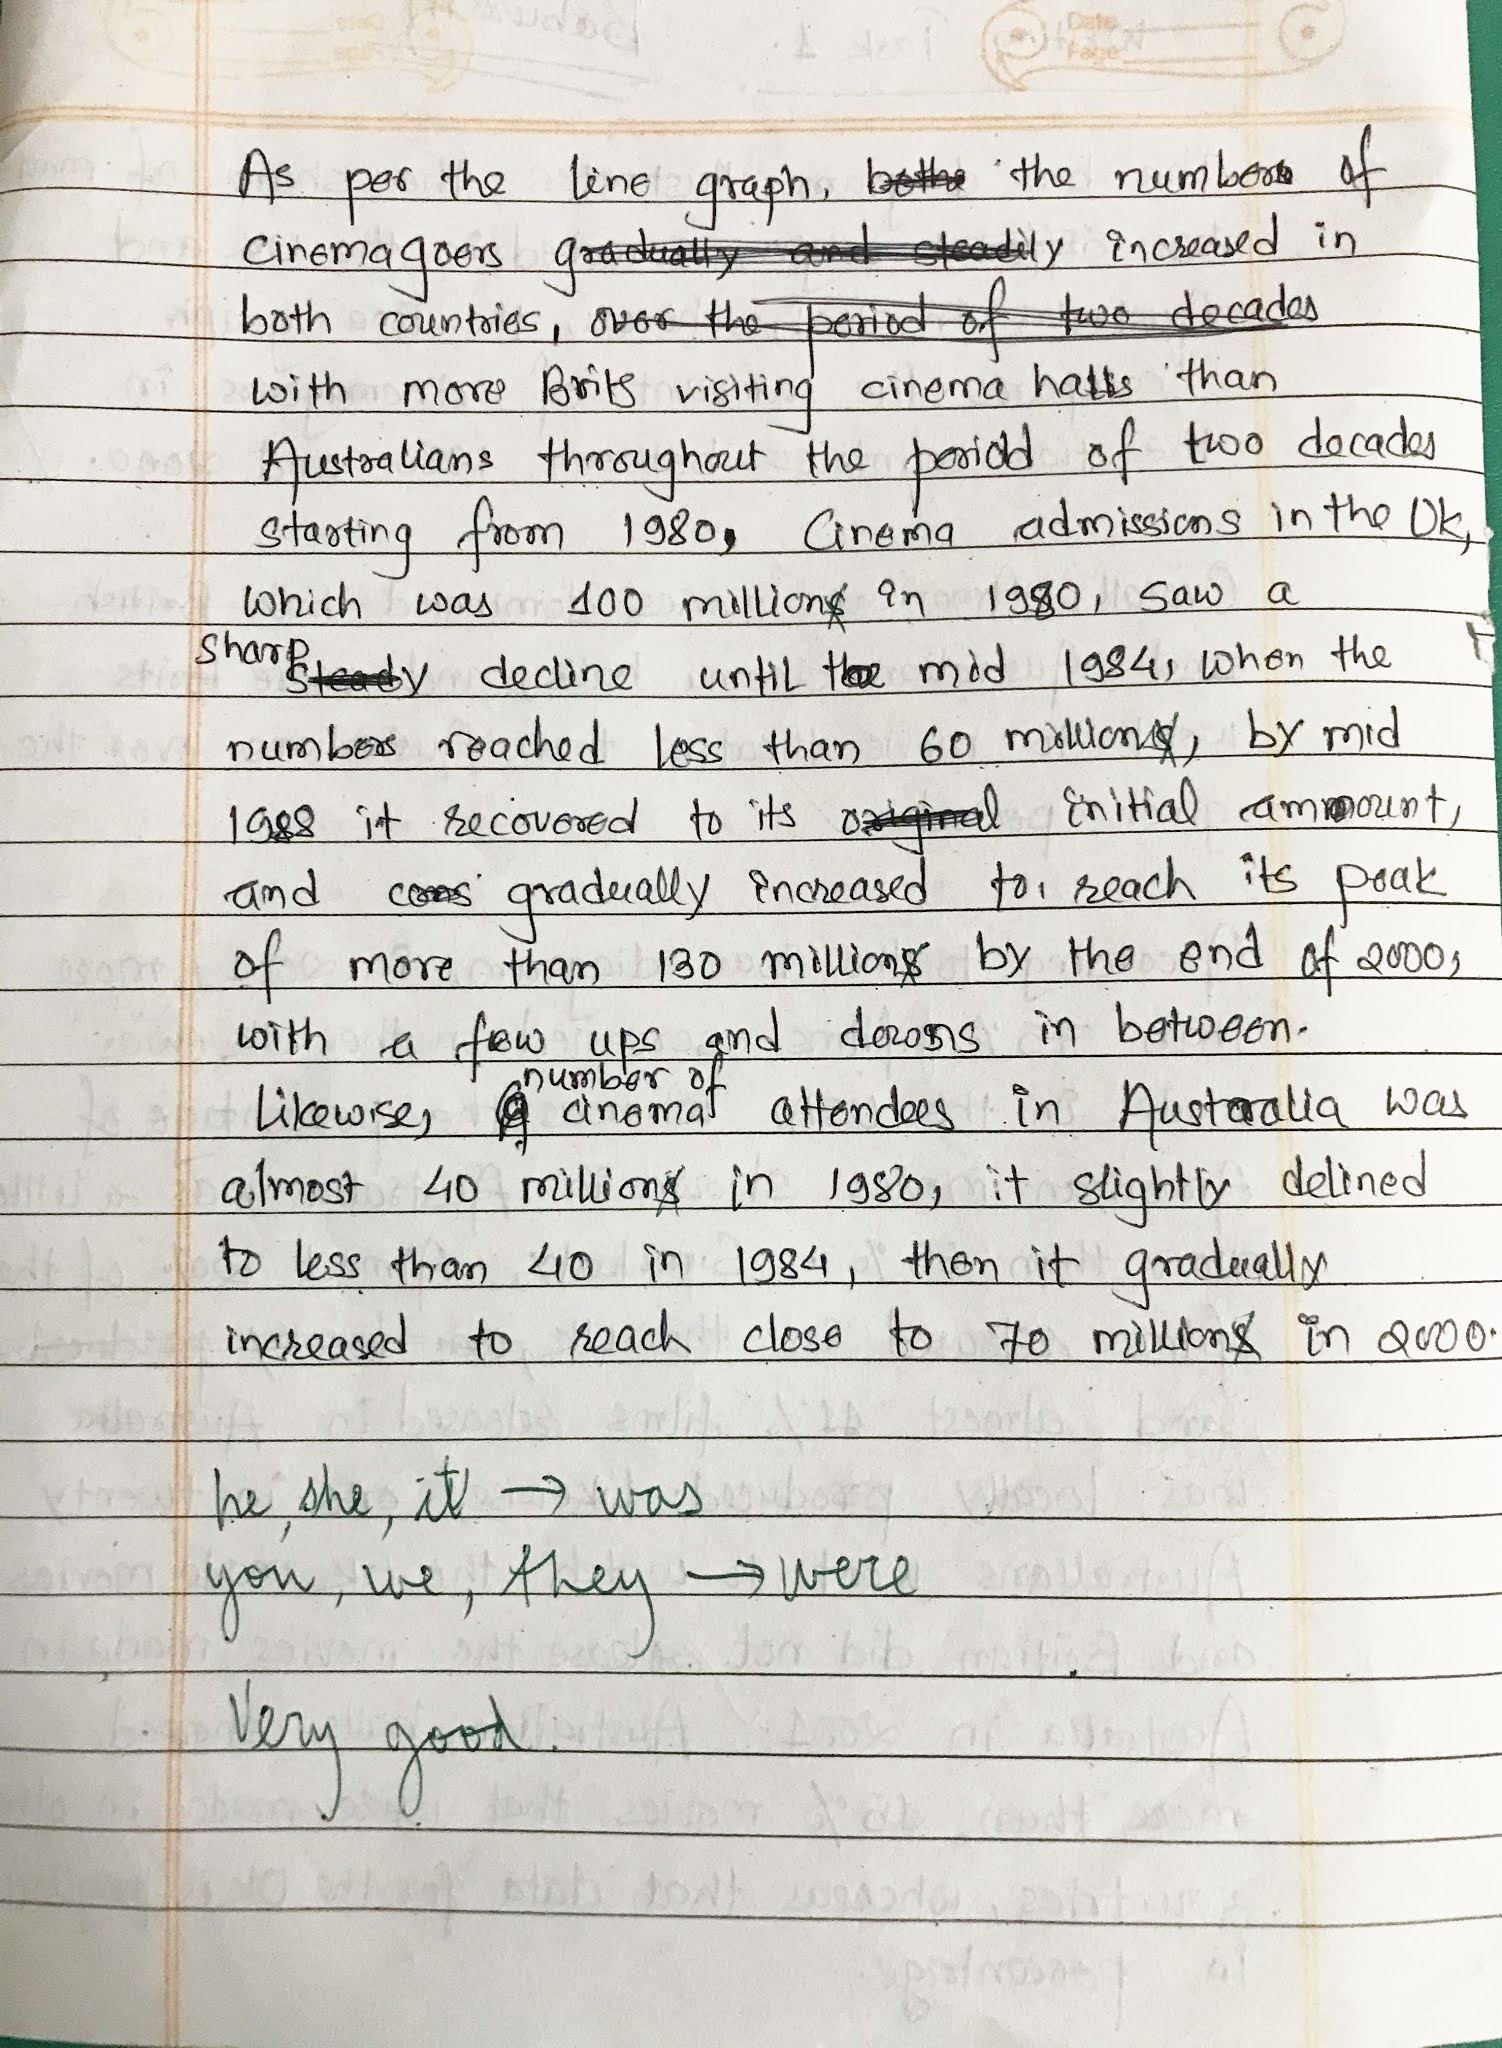 Date
Page
As per the line graph, bothe the numbers of
cinemagoers gradually and steadily increased in
both countries, over the period of two decades
with more Brits visiting cinema halls than
Australians throughout the period of two decades
starting from 1980, Cinema admissions in the Uk,
which was 100 millions in 1980, saw a
sharp
steady decline until the mid 1984, when the
numbers reached less than 60 millions, by mid
1988 it recovered to its original initial ammount,
and cons gradually increased to, reach its peak
of more than 130 millions by the end of 2000,
with a few ups and downs in between.
number of
Likewise, cinema attendees in Australia was
almost 40 millions in 1980, it slightly delined
to less than 40 in 1984, then it gradually
increased to reach close to 70 millions in 2000.
he, she, it → was
you, we, they → were
Very good.